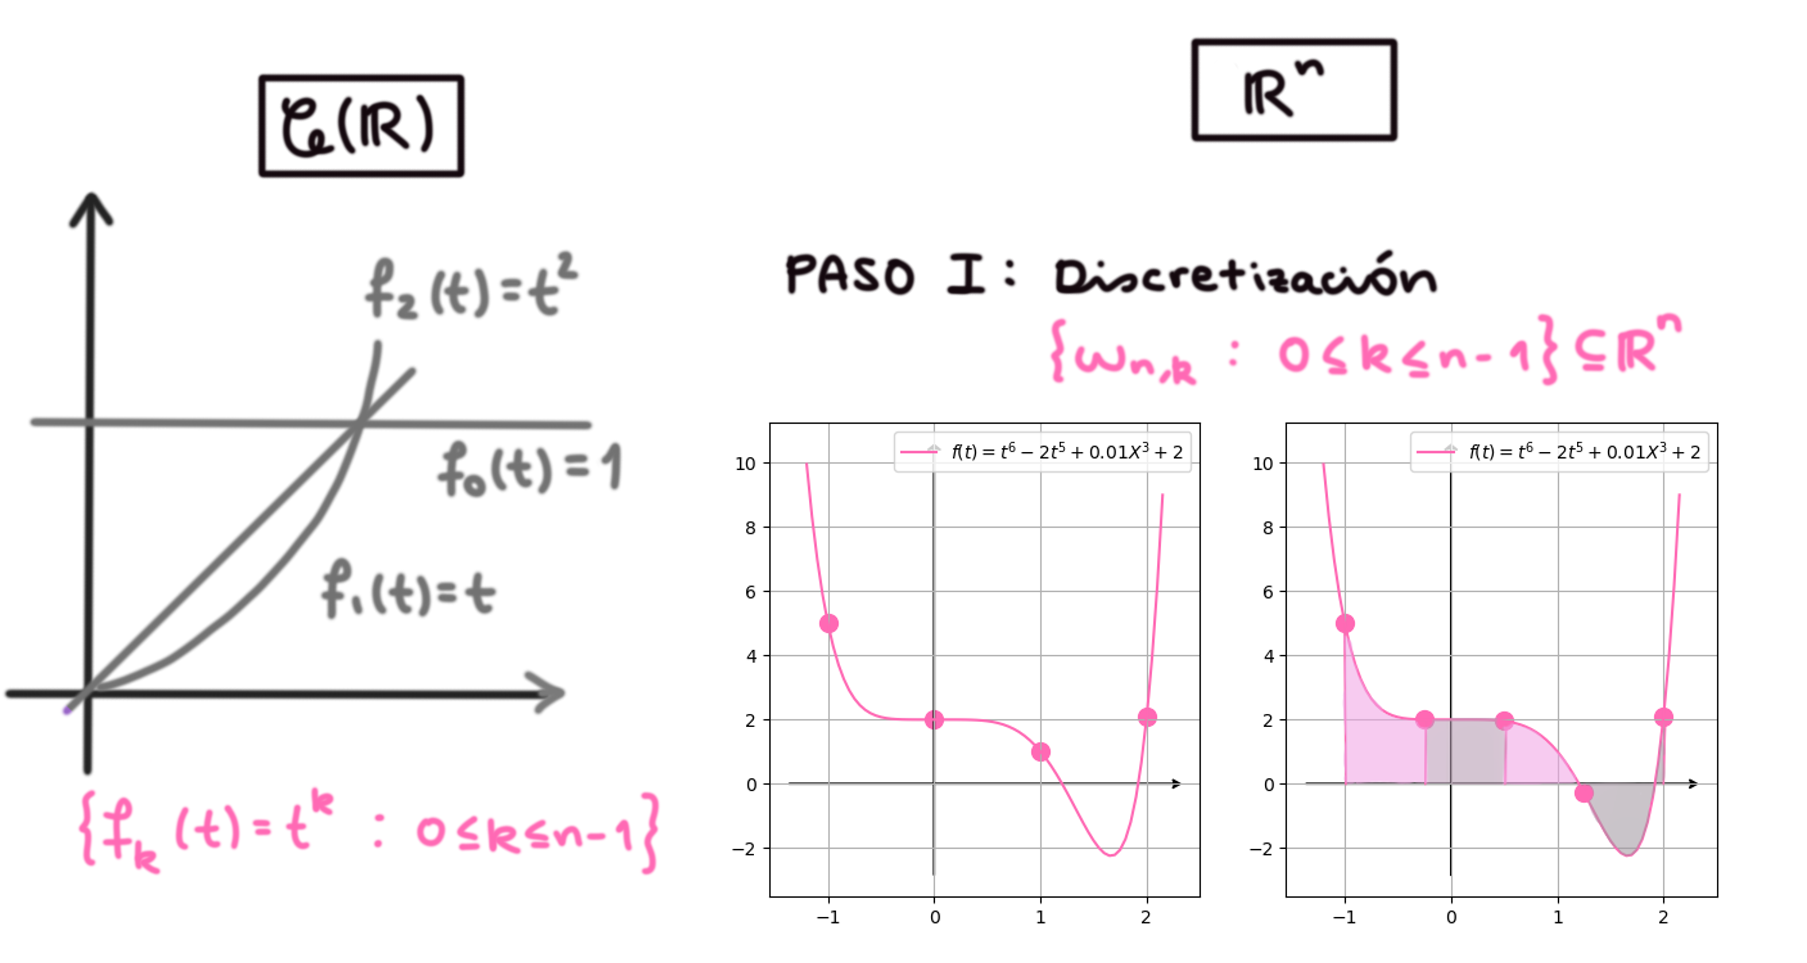 𝒞(ℝ)
f₂(t)=t²
f₀(t)=1
f₁(t)=t
{fₖ(t)=tᵏ : 0≤k≤n-1}
ℝⁿ
PASO I: Discretización
{ω_{n,k} : 0≤k≤n-1}⊆ℝⁿ
f(t) = t⁶ − 2t⁵ + 0.01X³ + 2
10
8
6
4
2
0
−2
−1 0 1 2
f(t) = t⁶ − 2t⁵ + 0.01X³ + 2
10
8
6
4
2
0
−2
−1 0 1 2